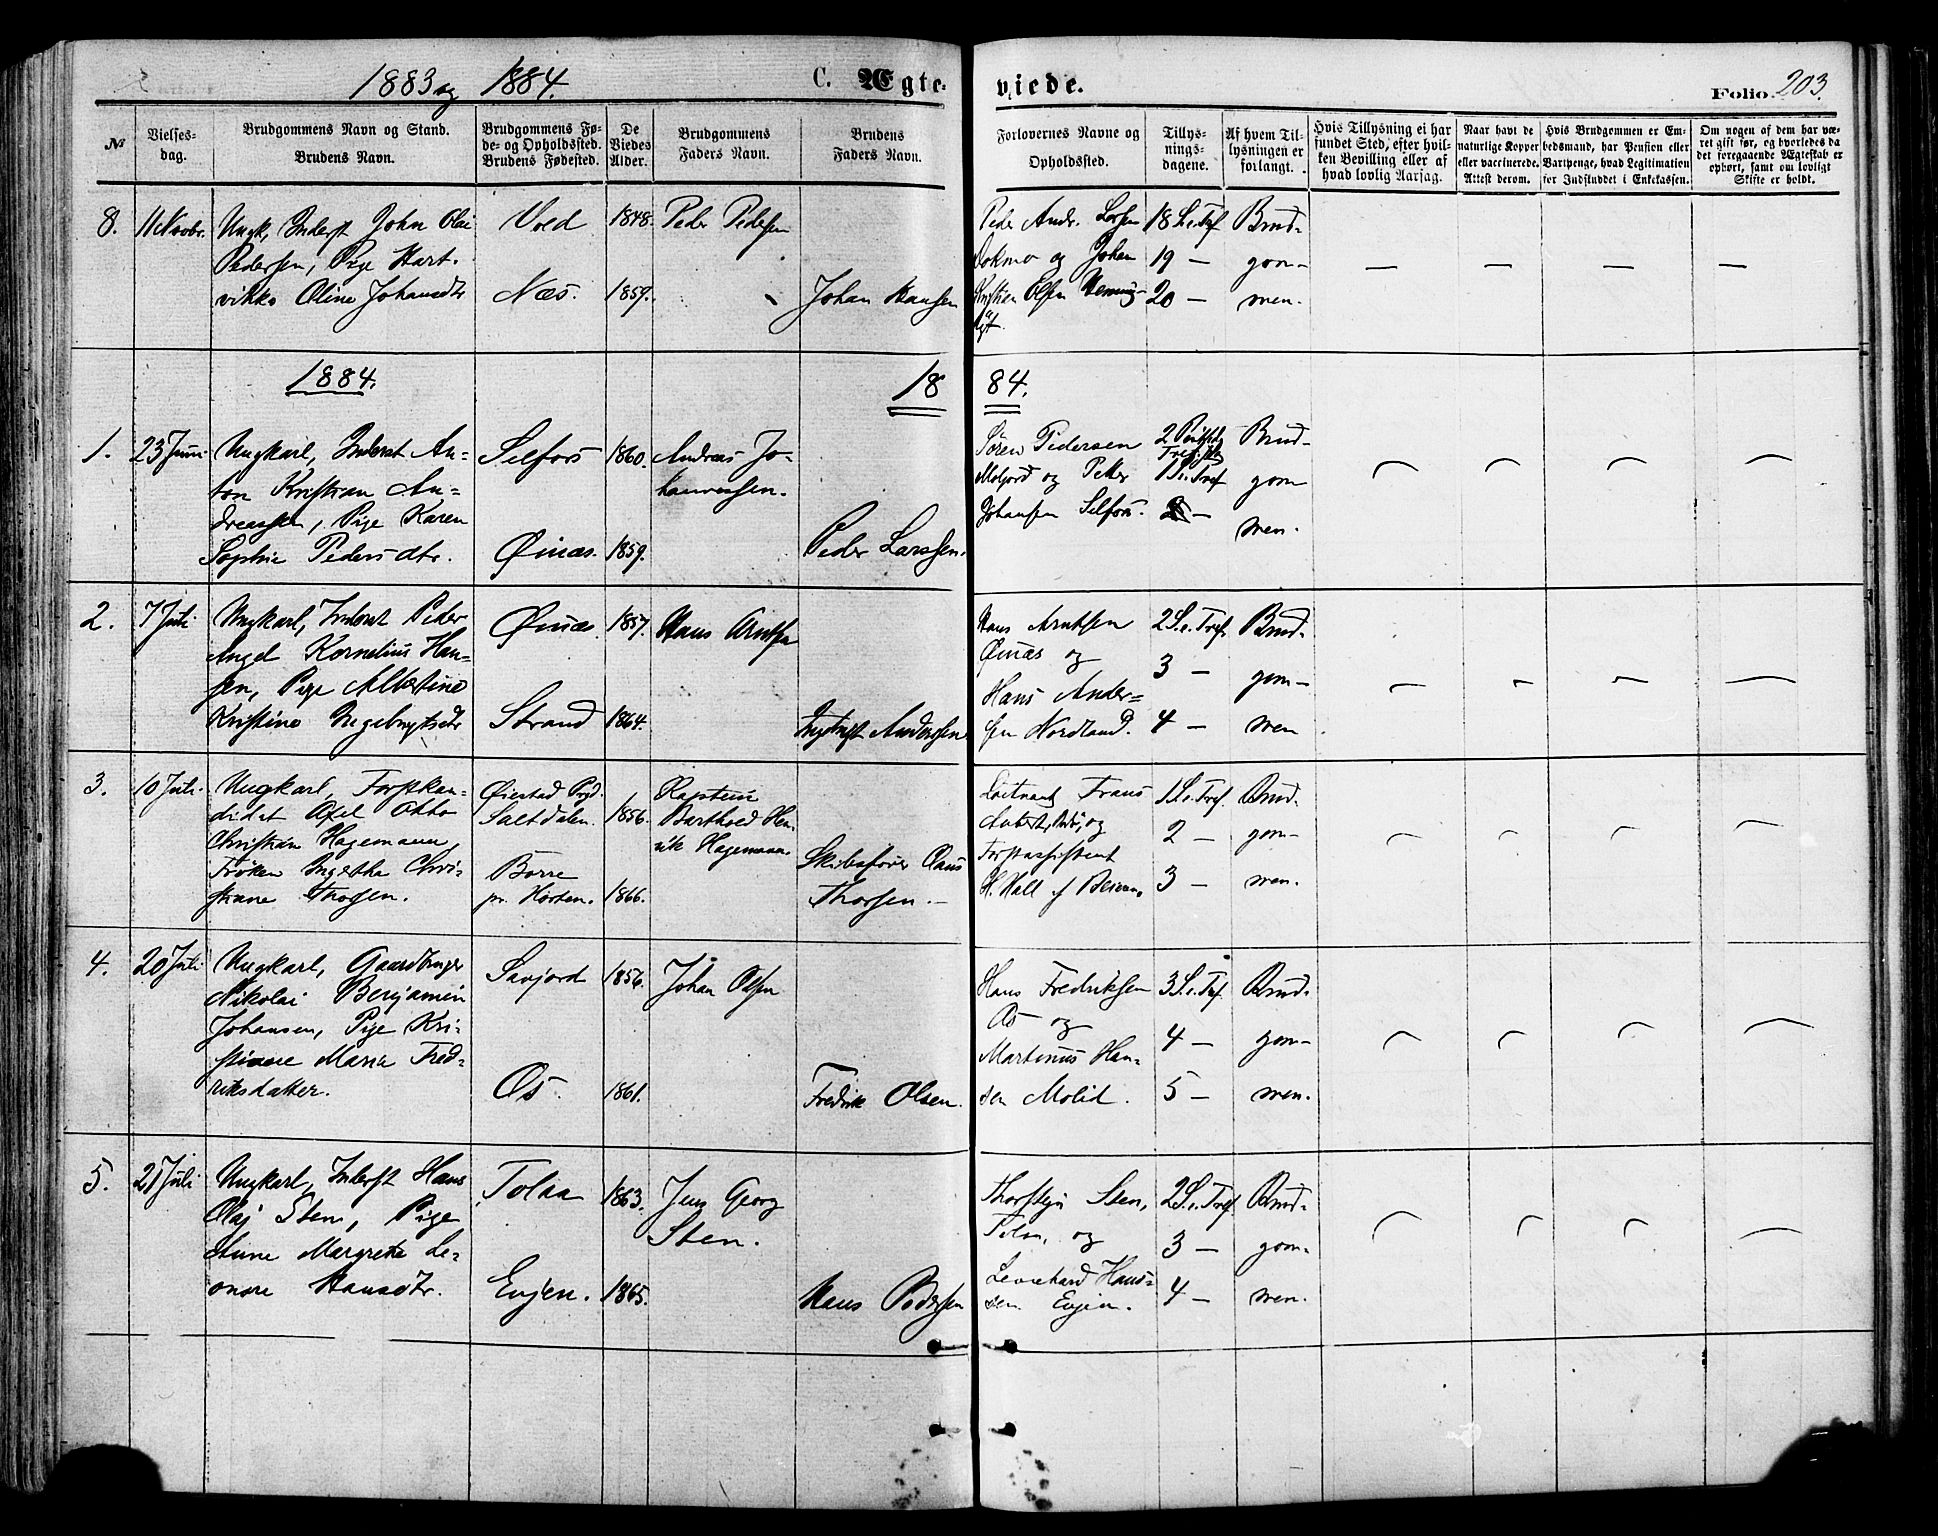 1883 og 1884.
C. Ægte-
viede.
Folio 203.
№
Vielses-
dag.
Brudgommens Navn og Stand.
Brudens Navn.
Brudgommens Fø-
de- og Opholdssted.
Brudens Fødested.
De
Viedes
Alder.
Brudgommens
Faders Navn.
Brudens
Faders Navn.
Forlovernes Navne og
Opholdssted.
Tillys-
nings-
dagene.
Af hvem Til-
lysningen er
forlangt.
Hvis Tillysning ei har
fundet Sted, efter hvil-
ken Bevilling eller af
hvad lovlig Aarsag.
Naar havt de
naturlige Kopper
eller vaccinerede.
Attest derom.
Hvis Brudgommen er Em-
bedsmand, har Pension eller
Vartpenge, hvad Legitimation
for Indskuddet i Enkekassen.
Om nogen af dem har væ-
ret gift før, og hvorledes da
det foregaaende Ægteskab er
ophørt, samt om lovligt
Skifte er holdt.
8.
11 Novbr.
Ungk, Inderst John Olai
Pedersen, Pige Hart-
vikka Oline Johansdtr
Vold
Næs.
1848.
1859.
Peder Pedersen
Johan Hansen
Peder Andr. Larsen
Dokmo og Johan
Kristian Olsen
18 S. e. Tref
19 —
20 —
Brud-
gom-
men.
1884.
18
84.
1.
23 Juni
Ungkarl, Inderst An-
ton Kristian An-
dreassen, Pige Karen
Sophie Pedersdtr.
Selfors
Øinæs.
1860.
1859.
Andreas Jo-
hannessen.
Peder Larssen.
Søren Pedersen
Moljord og Peter
Johansen Selfors.
1 S. e. Tref
2 —
Brud-
gom
men.
2.
7 Juli
Ungkarl, Inderst Peder
Angel Kornelius Han-
sen, Pige Albertine
Kristine Ingebrigtsdtr
Øinæs.
Strand
1857.
1864.
Hans Arntsen
Ingebrigt Anderssen
Hans Arntsen
Øinæs og
Hans Ander-
sen Nordland.
2 S. e. Tref.
3 —
4 —
Brud-
gom-
men
3.
10 Juli
Ungkarl, Forstkan-
didat Axel Otto
Christian Hagemann
Frøken Ingetha Chri-
stiane Thorsen.
Øiestad Prgd.
Saltdalen.
Borre
pr. Horten.
1856.
1866.
Kaptein
Barthold Hen-
rik Hagemann
Skibsfører Claus
Thorsen.
Løitnant Frans
og
Forstassistent
H. Hall af Beiarn.
1 S. e. Tref.
2 —
3 —
Brud-
gom-
men.
4.
20 Juli
Ungkarl, Gaardbruger
Nikolai Benjamin
Johansen, Pige Kri-
stiane Maria Fred-
riksdatter.
Savjord
Os.
1856.
1861.
Johan Olsen
Fredrik Olsen.
Hans Fredriksen
Os og
Martinus Han-
sen Molid.
3 S. e. Tref.
4 —
5 —
Brud-
gom-
men.
5.
21 Juli
Ungkarl, Inderst Hans
Olaj Sten, Pige
Anne Margrete Le-
onore Hansdtr.
Tolaa
Evjen.
1863.
1865.
Jens Georg
Sten.
Hans Pedersen
Thorstejn Sten,
Tolaa, og
Leonhard Hans-
sen Evjen.
2 S. e. Tref.
3 —
4 —
Brud-
gom-
men.